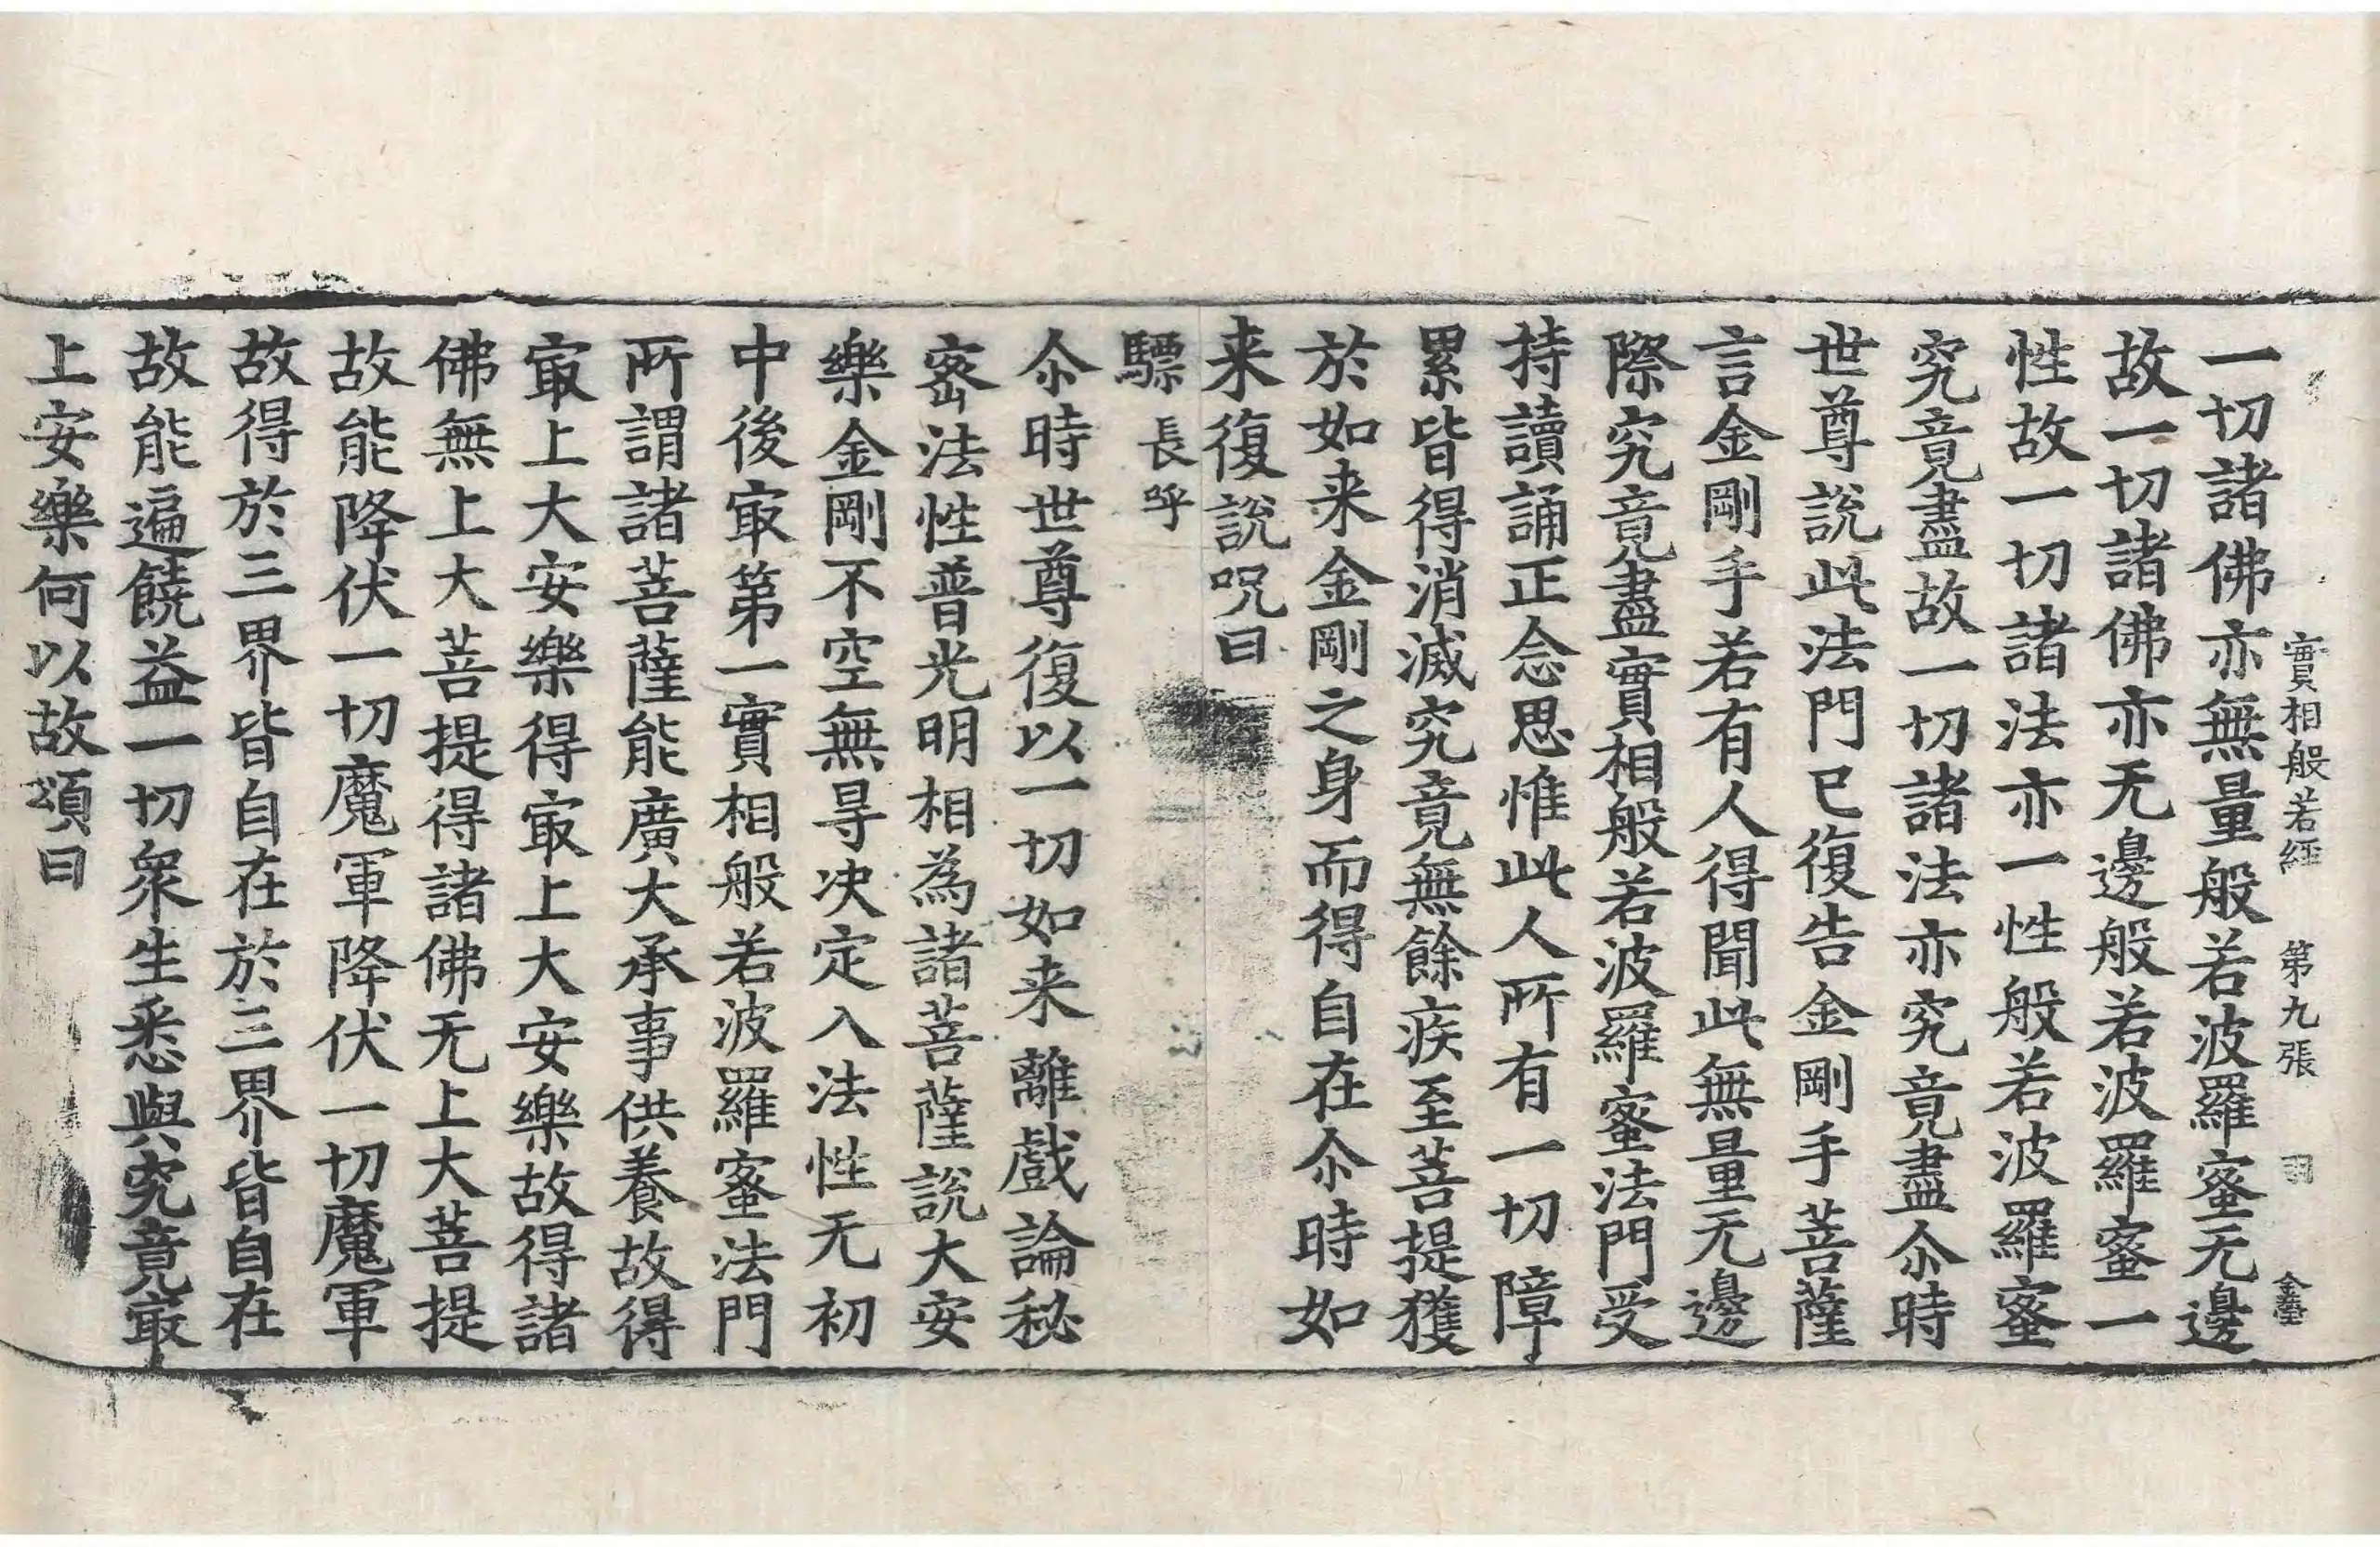 實相般若經 第九張 羽 金臺
一切諸佛亦無量般若波羅蜜无邊
故一切諸佛亦无邊般若波羅蜜一
性故一切諸法亦一性般若波羅蜜
究竟盡故一切諸法亦究竟盡尒時
世尊說此法門已復告金剛手菩薩
言金剛手若有人得聞此無量无邊
際究竟盡實相般若波羅蜜法門受
持讀誦正念思惟此人所有一切障
累皆得消滅究竟無餘疾至菩提獲
於如来金剛之身而得自在尒時如
来復說呪曰
驃 長呼
尒時世尊復以一切如来離戲論秘
密法性普光明相為諸菩薩說大安
樂金剛不空無㝵决定入法性无初
中後㝡第一實相般若波羅蜜法門
所謂諸菩薩能廣大承事供養故得
㝡上大安樂得㝡上大安樂故得諸
佛無上大菩提得諸佛无上大菩提
故能降伏一切魔軍降伏一切魔軍
故得於三界皆自在於三界皆自在
故能遍饒益一切衆生悉與究竟㝡
上安樂何以故頌曰